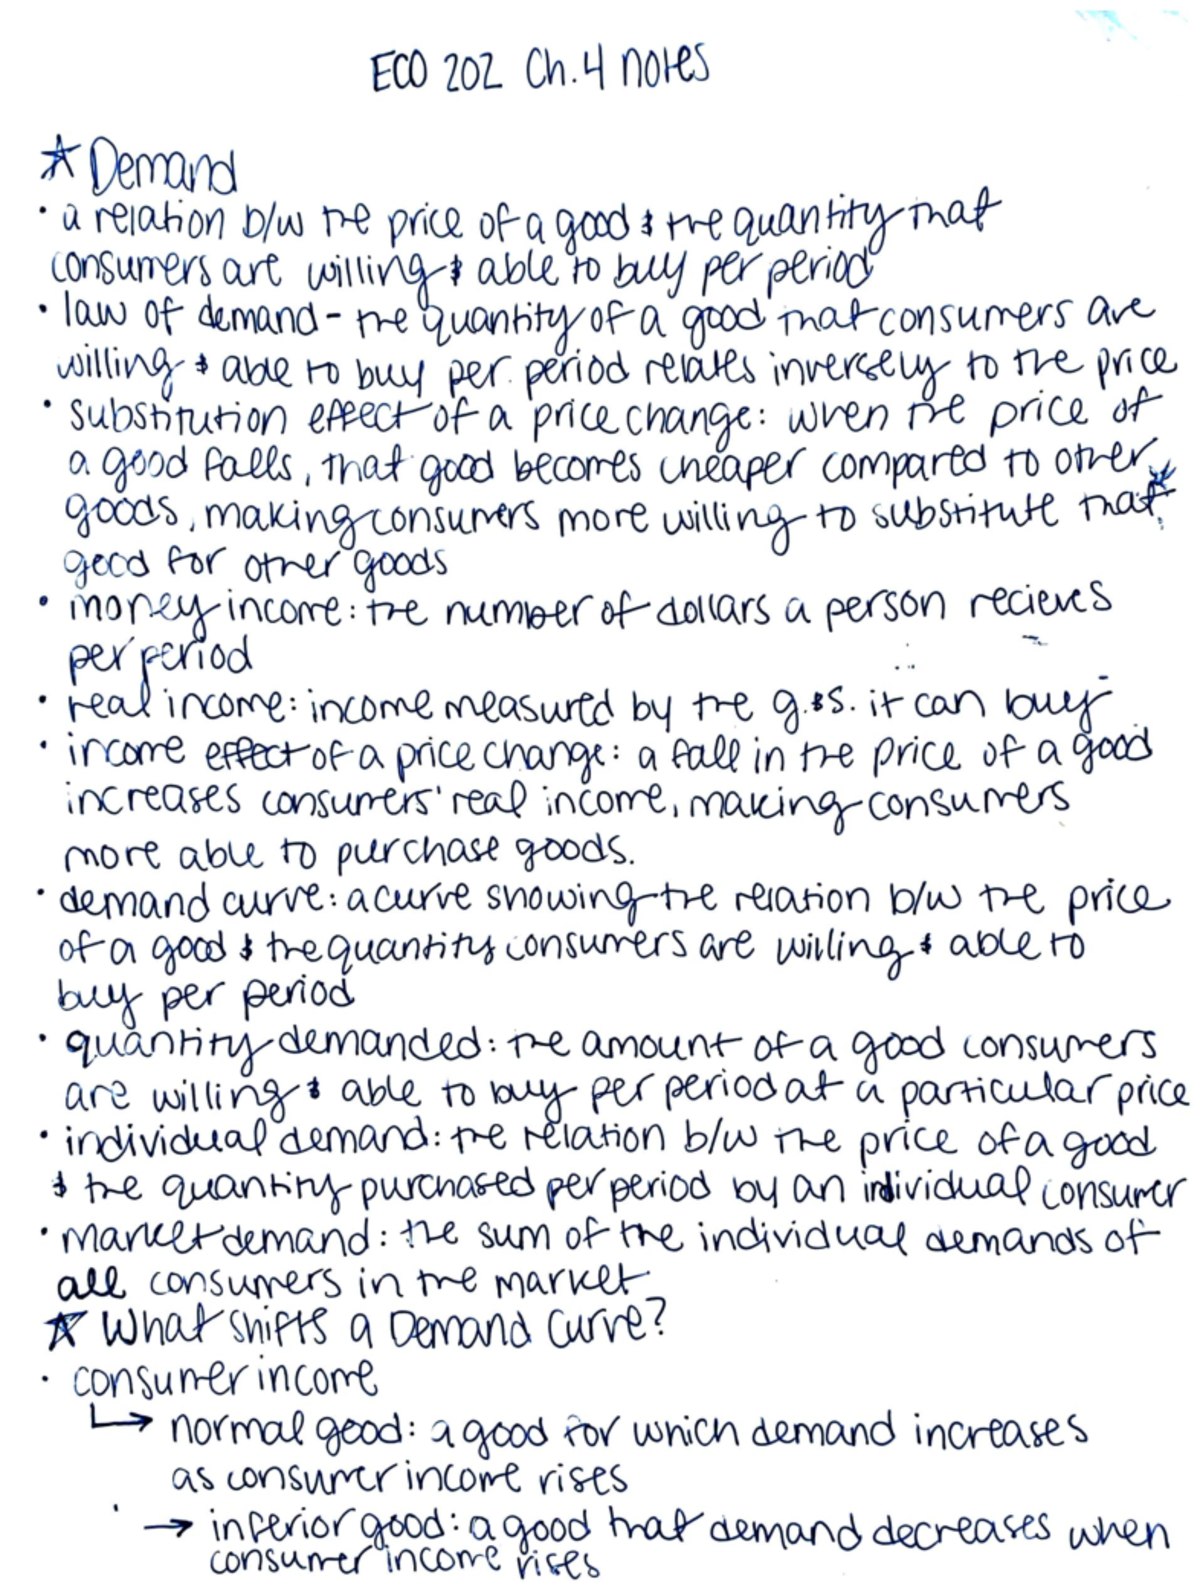 ECO 202 Ch.4 notes
☆ Demand
• a relation b/w the price of a good & the quantity that
consumers are willing & able to buy per period
• law of demand - the quantity of a good that consumers are
willing & able to buy per period relates inversely to the price
• substitution effect of a price change: when the price of
a good falls, that good becomes cheaper compared to other
goods, making consumers more willing to substitute that
good for other goods
• money income: the number of dollars a person recieves
per period
• real income: income measured by the g.&s. it can buy
• income effect of a price change: a fall in the price of a good
increases consumers' real income, making consumers
more able to purchase goods.
• demand curve: a curve showing the relation b/w the price
of a good & the quantity consumers are willing & able to
buy per period
• quantity demanded: the amount of a good consumers
are willing & able to buy per period at a particular price
• individual demand: the relation b/w the price of a good
& the quantity purchased per period by an individual consumer
• market demand: the sum of the individual demands of
all consumers in the market
☆ What shifts a Demand Curve?
• consumer income
↳ normal good: a good for which demand increases
as consumer income rises
→ inferior good: a good that demand decreases when
consumer income rises